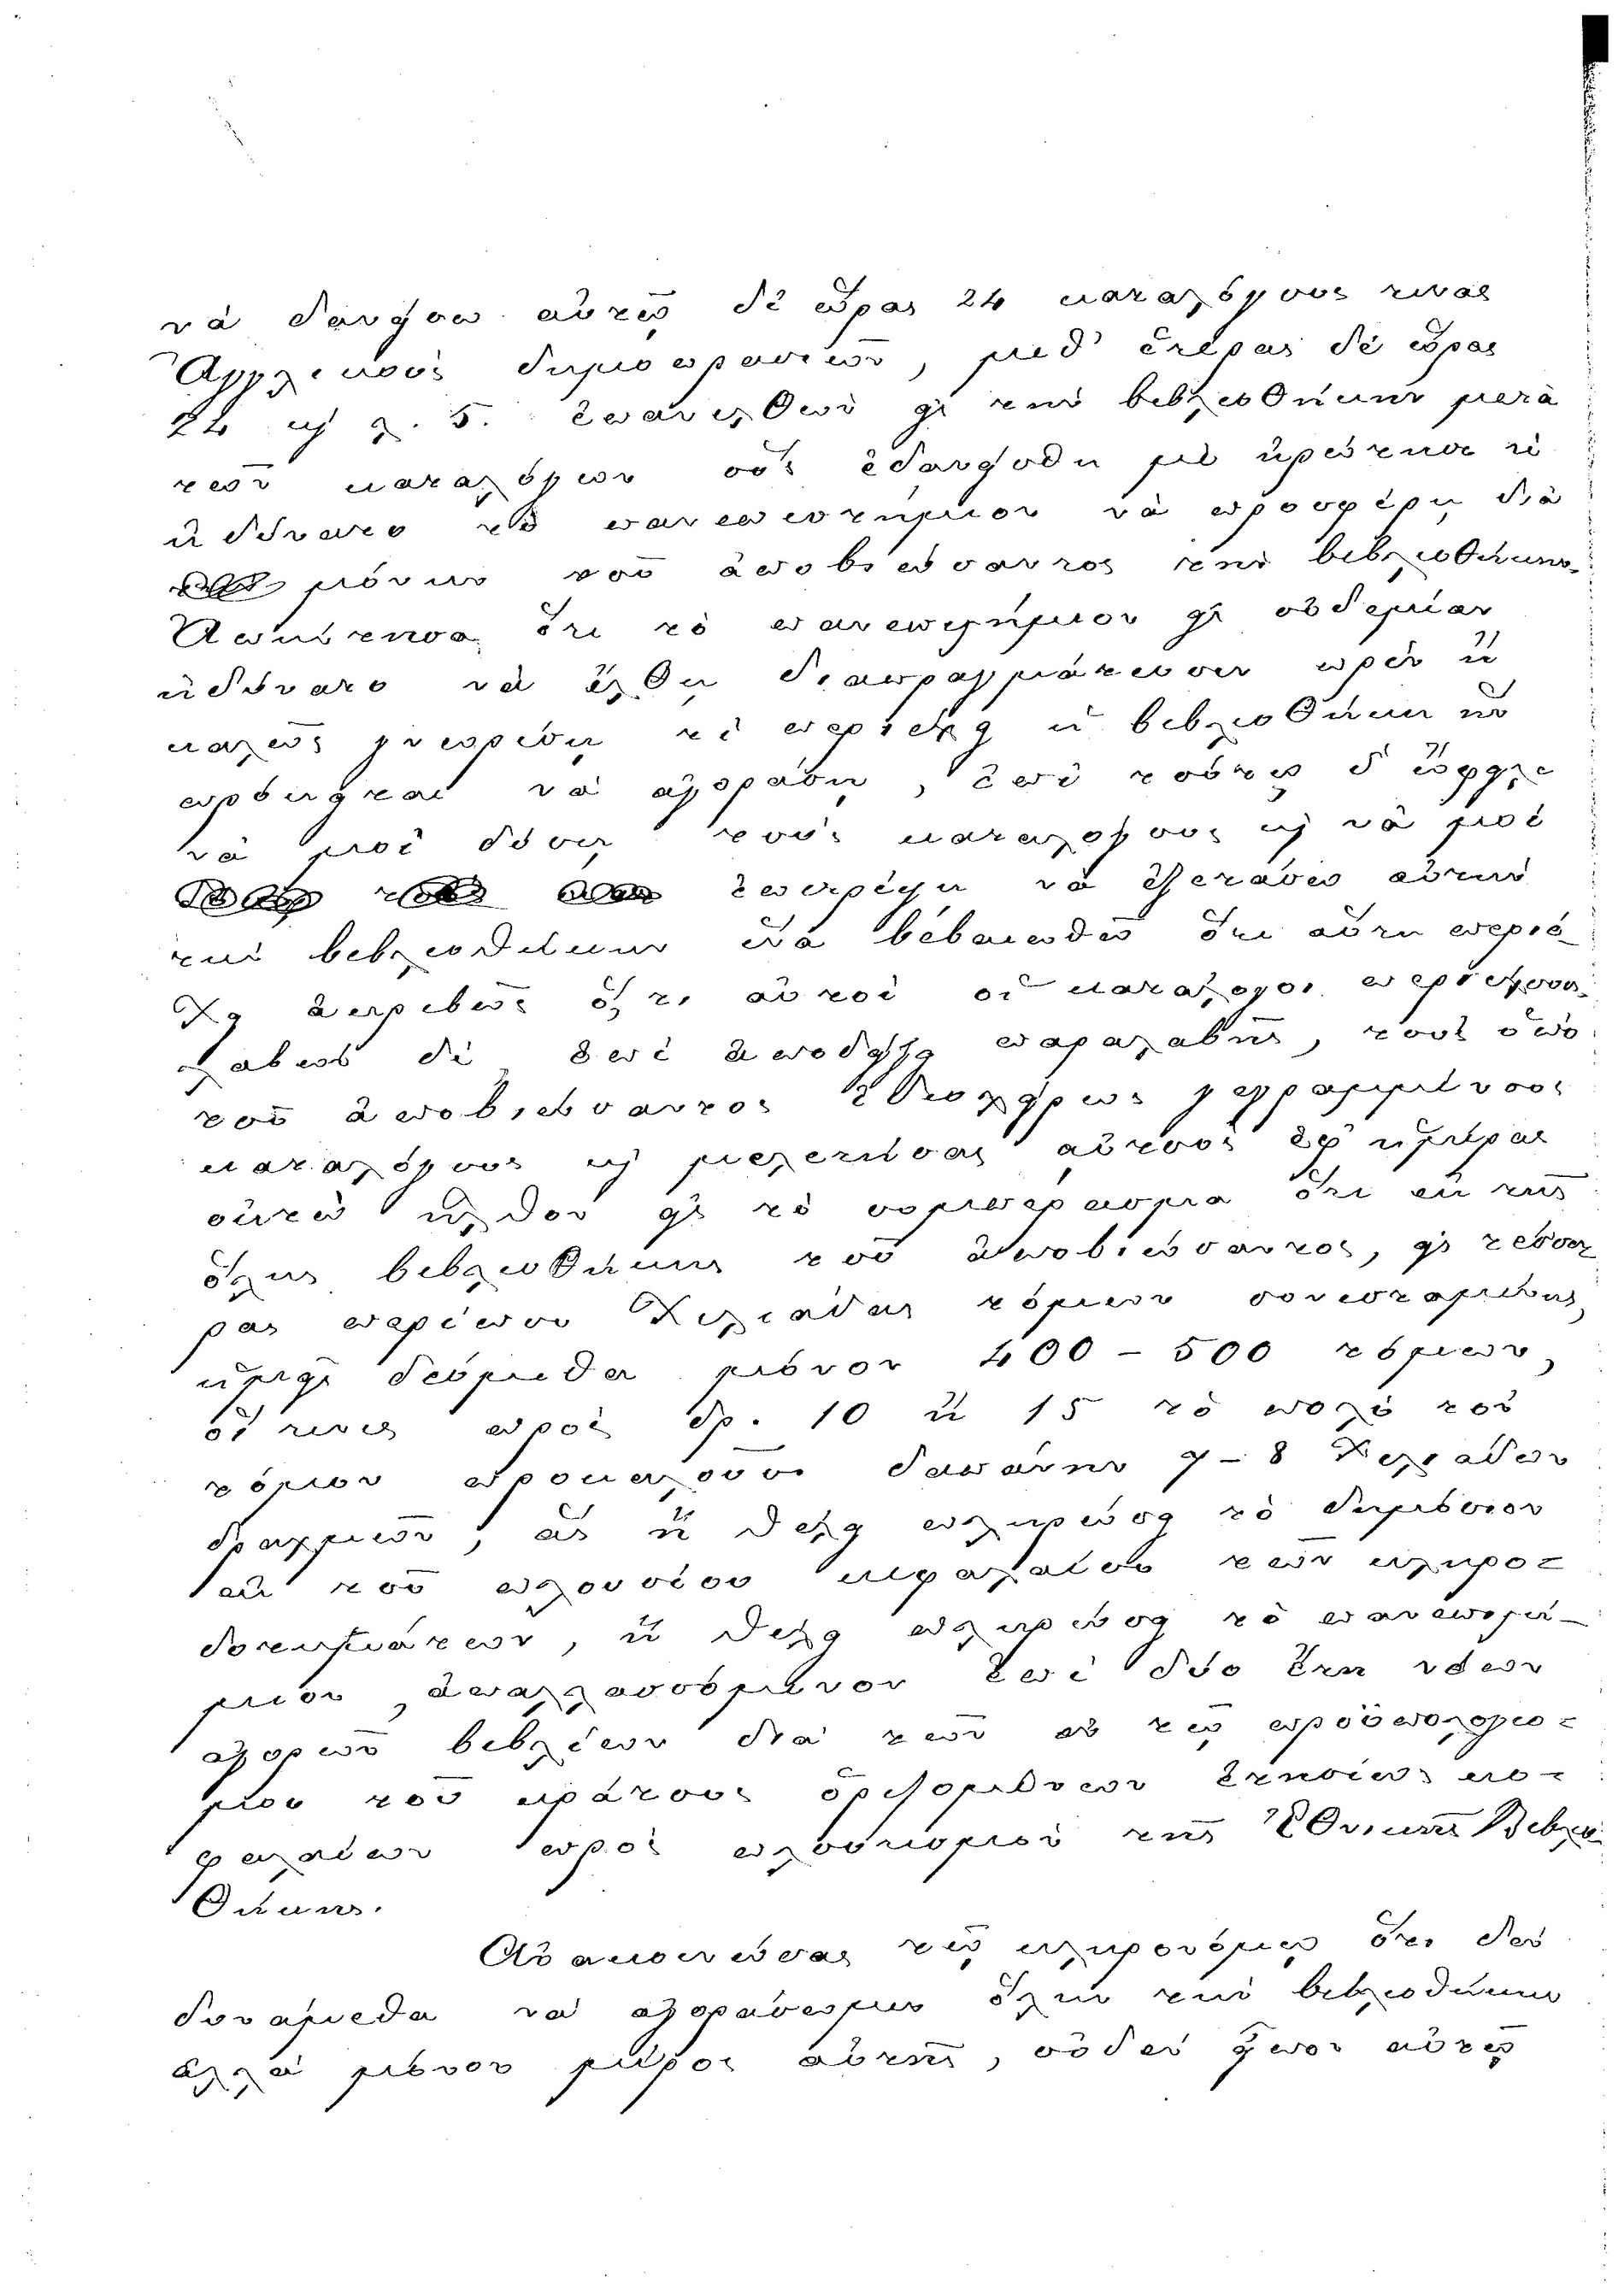 νὰ δανείσω αὐτῷ δι' ὥρας 24 καταλόγους τινὰς
Ἀγγλικοὺς δημοπρασιῶν, μεθ' ἑτέρας δὲ ὥρας
24 καὶ λ. 5. ἐπανελθὼν εἰς τὴν βιβλιοθήκην μετὰ
τῶν καταλόγων οὓς ἐδανείσθη μὲ ἠρώτησε τί
ἠδύνατο τὸ πανεπιστήμιον νὰ προσφέρῃ διὰ
μόνην τοῦ ἀποβιώσαντος τὴν βιβλιοθήκην.
Ἀπήντησα ὅτι τὸ πανεπιστήμιον εἰς οὐδεμίαν
ἠδύνατο νὰ ἔλθῃ διαπραγμάτευσιν πρὶν ἢ
καλῶς γνωρίσῃ τί περιέχει ἡ βιβλιοθήκη ἣν
πρόκειται νὰ ἀγοράσῃ, ἐπὶ τούτῳ δ' ὤφειλε
νὰ μοὶ δώσῃ τοὺς καταλόγους καὶ νὰ μοὶ
ἐπιτρέψῃ νὰ ἐξετάσω αὐτὴν
τὴν βιβλιοθήκην ἵνα βεβαιωθῶ ὅτι αὕτη περιέ-
χει ἀκριβῶς ὅ,τι αὐτοὶ οἱ κατάλογοι περιέχουσι.
Λαβὼν δὲ ἐπὶ ἀποδείξει παραλαβῆς, τοὺς ὑπὸ
τοῦ ἀποβιώσαντος ἰδιοχείρως γεγραμμένους
καταλόγους καὶ μελετήσας αὐτοὺς ἐφ' ἡμέρας
ὀκτὼ ἦλθον εἰς τὸ συμπέρασμα ὅτι ἐκ τῆς
ὅλης βιβλιοθήκης τοῦ ἀποβιώσαντος, εἰς τέσσα-
ρας περίπου χιλιάδας τόμων συνισταμένης,
χρείαν μόνον 400 – 500 τόμων,
οἵτινες πρὸς δρ. 10 ἢ 15 τὸ πολὺ τοῦ
τόμου προκαλοῦσι δαπάνην 7 – 8 χιλιάδων
δραχμῶν, ἃς ἢ θέλει πληρώσει τὸ δημόσιον
ἐκ τοῦ πλουσίου κεφαλαίου τῶν κληρο-
δοτημάτων, ἢ θέλει πληρώσει τὸ πανεπιστή-
μιον, ἀπαλλασσόμενον ἐπὶ δύο ἔτη νέων
ἀγορῶν βιβλίων διὰ τῶν ἐν τῷ προϋπολογισ-
μῷ τοῦ κράτους ὁριζομένων ἐτησίως κε-
φαλαίων πρὸς πλουτισμὸν τῆς Ἐθνικῆς Βιβλιο-
θήκης.
Ἀνακοινώσας τῷ κληρονόμῳ ὅτι δὲν
δυνάμεθα νὰ ἀγοράσωμεν ὅλην τὴν βιβλιοθήκην
ἀλλὰ μόνον μέρος αὐτῆς, οὐδὲν εἶπον αὐτῷ